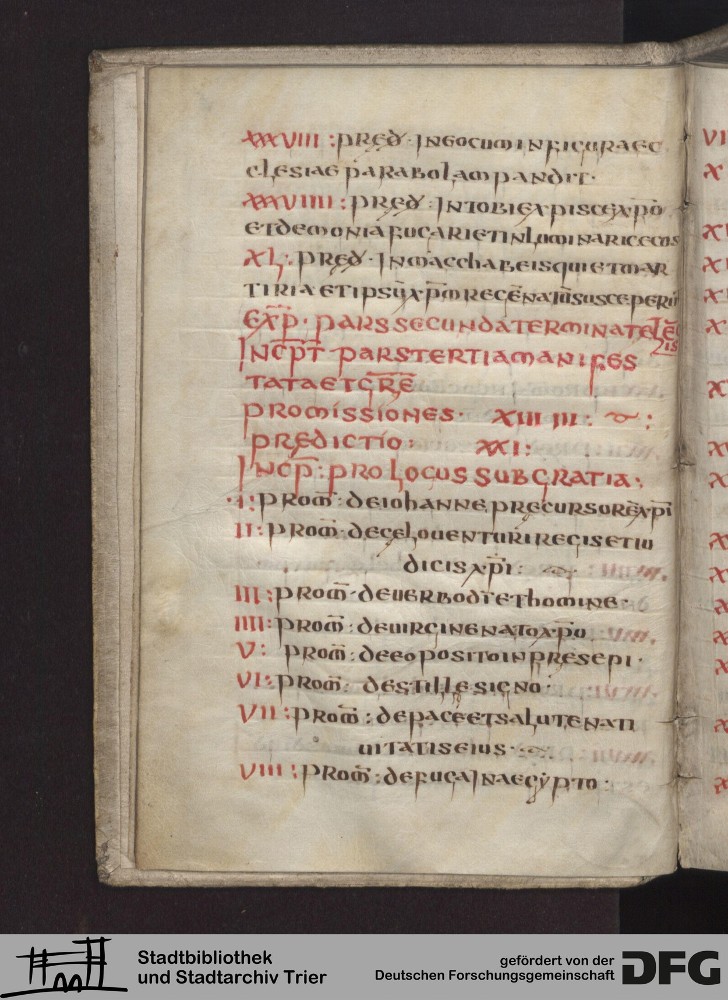 XXXVIII : PRED · INEOCUM IN FIGURA EC
CLESIAE PARABOLAM PANDIT ·
XXXVIIII : PRED · IN TOBI EX PISCE XPŌ
ET DEMONIA FUGARI ET INLUMINARI CECUS
XL : PRED · IN MACCHABEIS QUI ET MAR
TIRIA ET IPSŪ XP̄M REGENATŪ SUSCEPERŪ
EXP̄ · PARS SECUNDA TERMINATE LE
GIS
INCP̄T PARS TERTIA MANIFES
TATA ET GR̄E
PROMISSIONES · XIII III :
PREDICTIO : XXI :
INCP̄ : PROLOGUS SUB GRATIA :
· I : PROM̄ : DE IOHANNE PRECURSORE XP̄I
II : PROM̄ : DE CELO UENTURI REGIS ET IU
DICIS XP̄I :
III : PROM̄ · DE UERBO DĪ ET HOMINE ·
IIII : PROM̄ : DE UIRGINE NATO XP̄O
V : PROM̄ : DE EO POSITO IN PRESEPI ·
VI : PROM̄ : DE STILLE SIGNO
VII : PROM̄ : DE PACE ET SALUTE NATI
UITATIS EIUS ·
VIII : PROM̄ : DE FUGA IN AEGYPTO ·
Stadtbibliothek
und Stadtarchiv Trier
gefördert von der
Deutschen Forschungsgemeinschaft
DFG